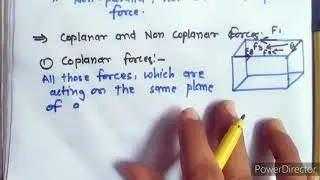 Non-parallel, Non
force.
⇒ Coplanar and Non coplanar forces:-
① Coplanar forces:-
All those forces, which are
acting on the same plane
of a
F1
F2
PowerDirector